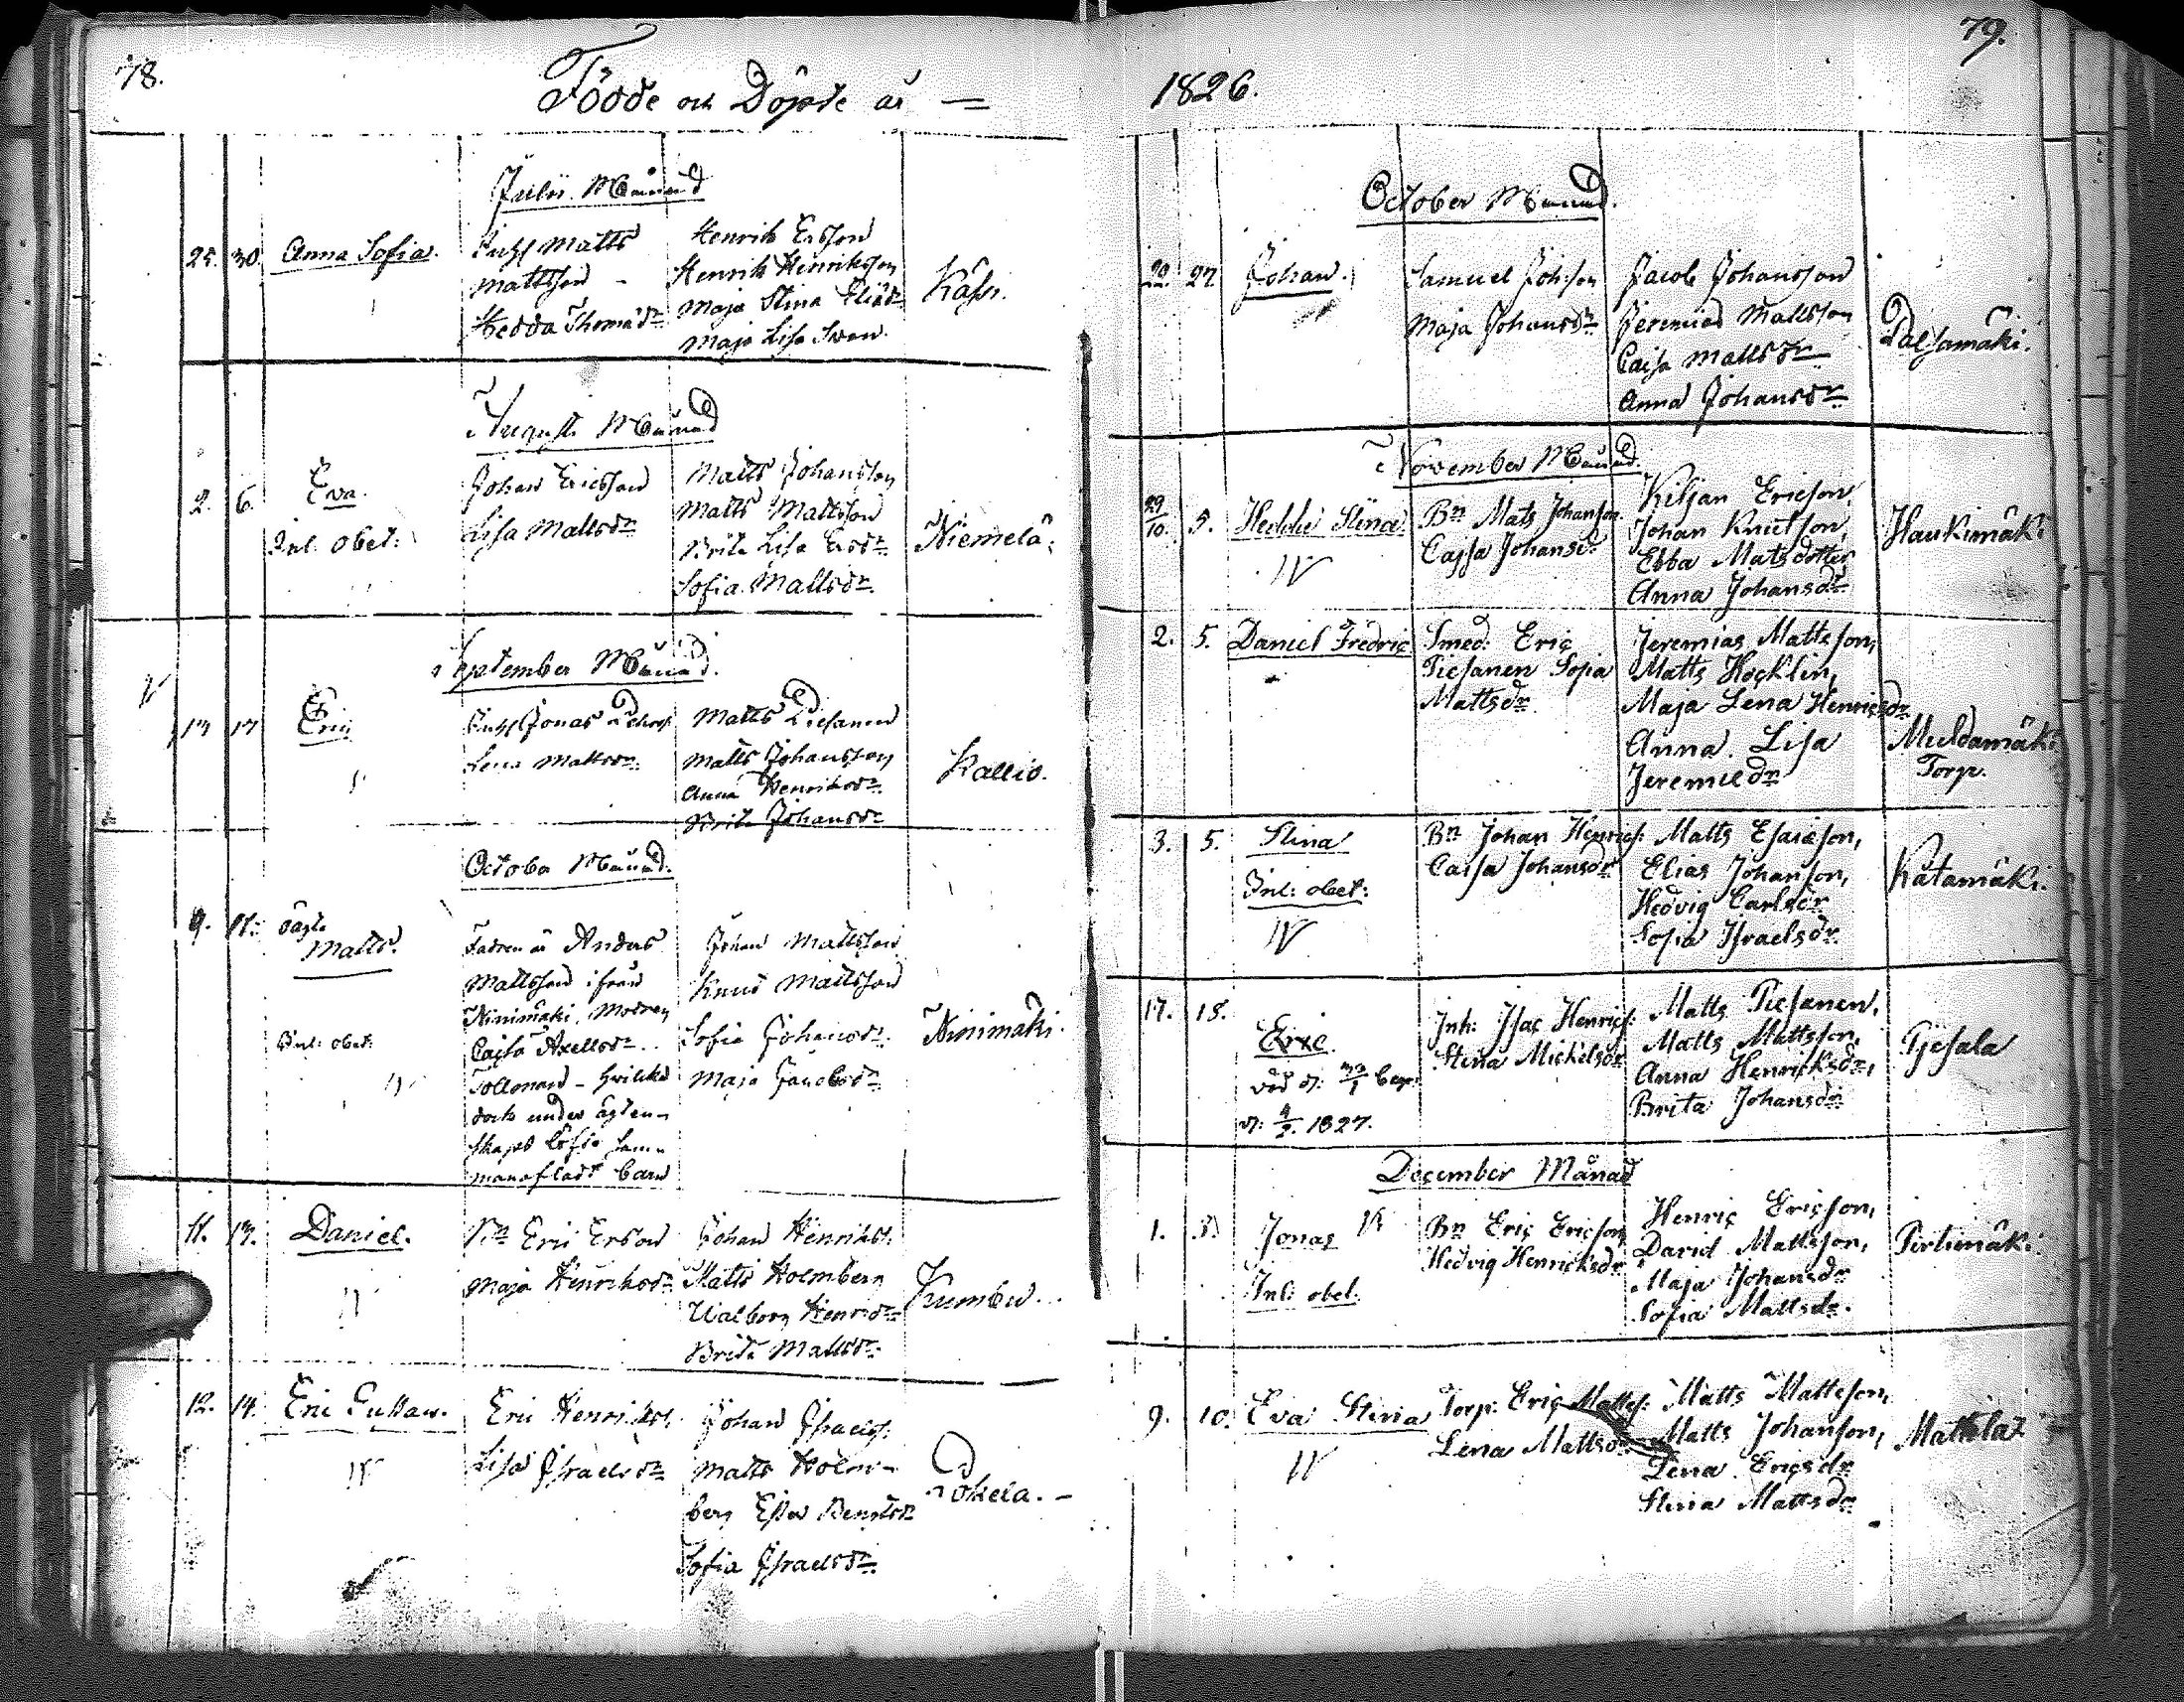 78.
Födde och Döpte år —
Julii Månad
25. 30. Anna Sofia.
Matts
Mattsson
Hedda Thomsdr
Henrik Ersson
Henrik Henriksson
Maja Stina
Maja Lisa Swen
Augusti Månad
2. 6. Eva.
Inl. obet:
Johan Ericsson
Lisa Mattsdr
Matts Johansson
Matts Mattsson
Brita Lisa Ersdr
Sofia Mattsdr
Niemelä
September Månad.
13 17 Eric
Jonas
Lena Mattsdr
Matts
Matts Johansson
Anna Henriksdr
Brita Johansdr
Kallio.
October Månad.
9. 11. oägte
Matts.
Inl: obet:
Fadren är Anders
Mattsson ifrån
Ninimäki, Modren
Cajsa Axelsdr
dock under ägten-
skaps löfte sam-
manafladt barn
Johan Mattsson
Knut Mattsson
Sofia Johansdr
Maja Jacobsdr
Ninimäki.
11. 13. Daniel.
Bn Eric Ersson
Maja Henriksdr
Johan Henrikss.
Matts Holmberg
Walborg Henrsdr
Brita Mattsdr
Kumbu.
12. 14. Eric Gustav.
Eric Henrikss.
Lisa Israelsdr
Johan Israelss.
Matts Holm-
berg
Sofia Israelsdr
79.
1826.
October Månad.
20. 22. Johan.
Samuel Johsson
Maja Johansdr
Jacob Johansson
Jeremias Mattsson
Caisa Mattsdr
Anna Johansdr
Palsamäki.
November Månad.
29/10. 5. Hedda Stina
Bn Mats Johanson.
Cajsa Johansd.
Kiljan Ericson
Johan Knutson,
Ebba Matsdotter
Anna Johansdr
Haukimäki
2. 5. Daniel Fredric
Smed. Eric
Piesanen Sofia
Mattsdr
Jeremias Mattsson,
Matts Hocklin,
Maja Lena Henricsdr
Anna Lisa
Jeremiedr
Muldamäki
Torp.
3. 5. Stina
Inl: obet:
Bn Johan Henrics:
Caisa Johansdr
Matts Esaiesson,
Elias Johanson,
Hedvig Carlsdr
Sofia Israelsdr
Katamäki.
17. 18.
d: 4/2. 1827.
Inh: Isac Henrics:
Stina Mickelsdr
Matts Piesanen,
Matts Mattsson,
Anna Henricksdr,
Brita Johansdr
Pjesala
December Månad
1. 3. Jonas
Inl: obet.
Bn Eric Ericson
Hedvig Henricksdr
Henric Ericson,
David Mattsson,
Maja Johansdr
Sofia Mattsdr.
Pirtimäki.
9. 10. Eva Stina
Torp: Eric Mattss:
Lena Mattsdr
Matts Mattsson,
Matts Johanson,
Lena Ericsdr
Stina Mattsdr
Mattila